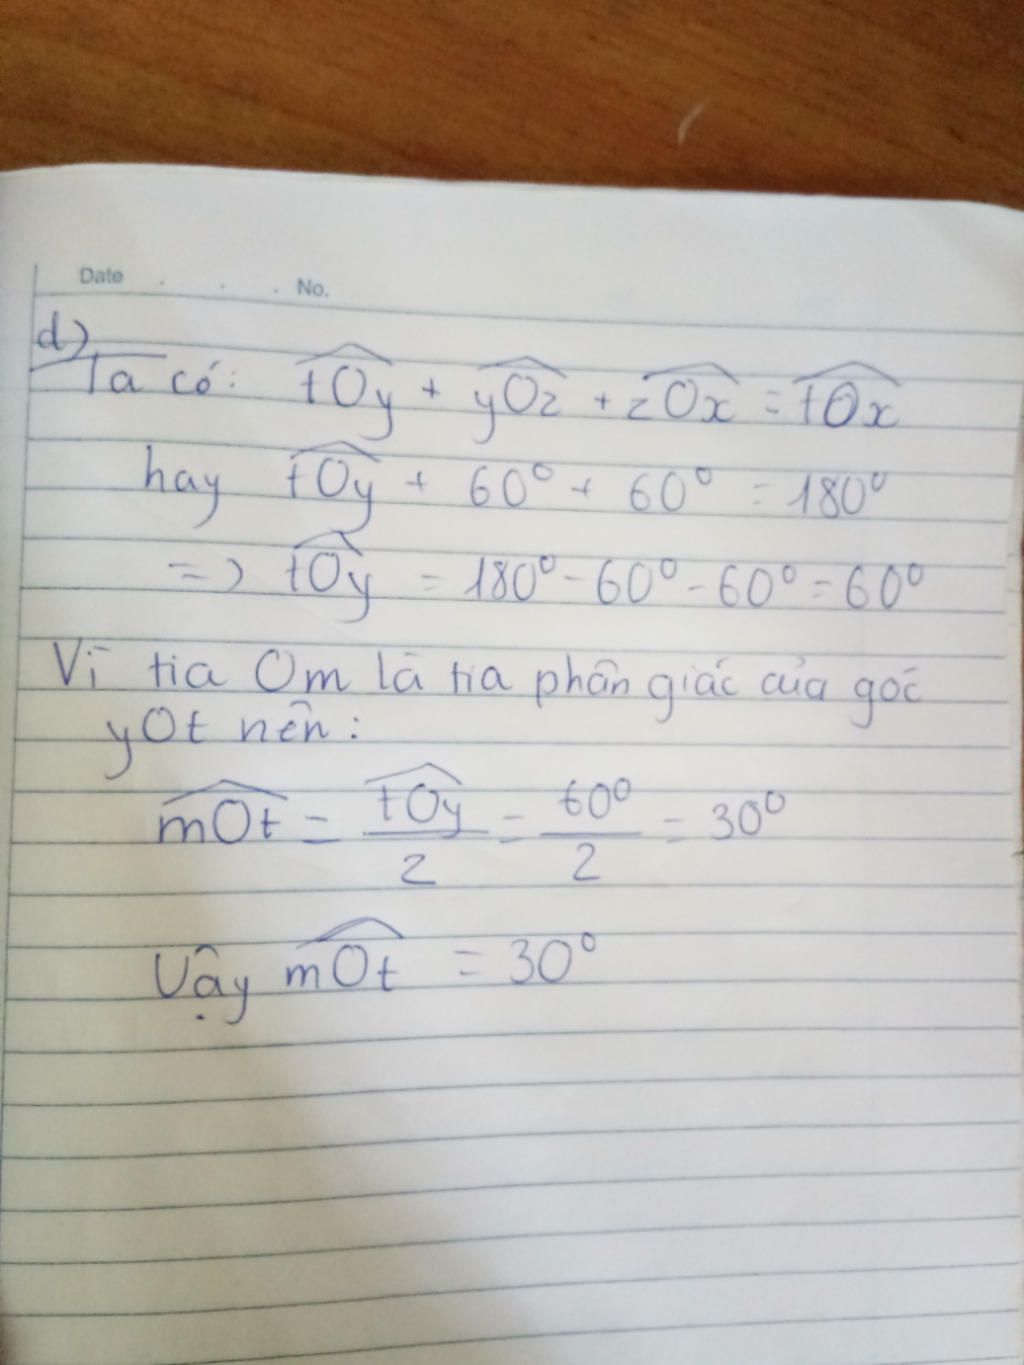 Date . . . No.
d)
Ta có: tOy + yOz + zOx = tOx
hay tOy + 60° + 60° = 180°
=> tOy = 180° - 60° - 60° = 60°
Vì tia Om là tia phân giác của góc
yOt nên:
mOt = tOy/2 = 60°/2 = 30°
Vậy mOt = 30°